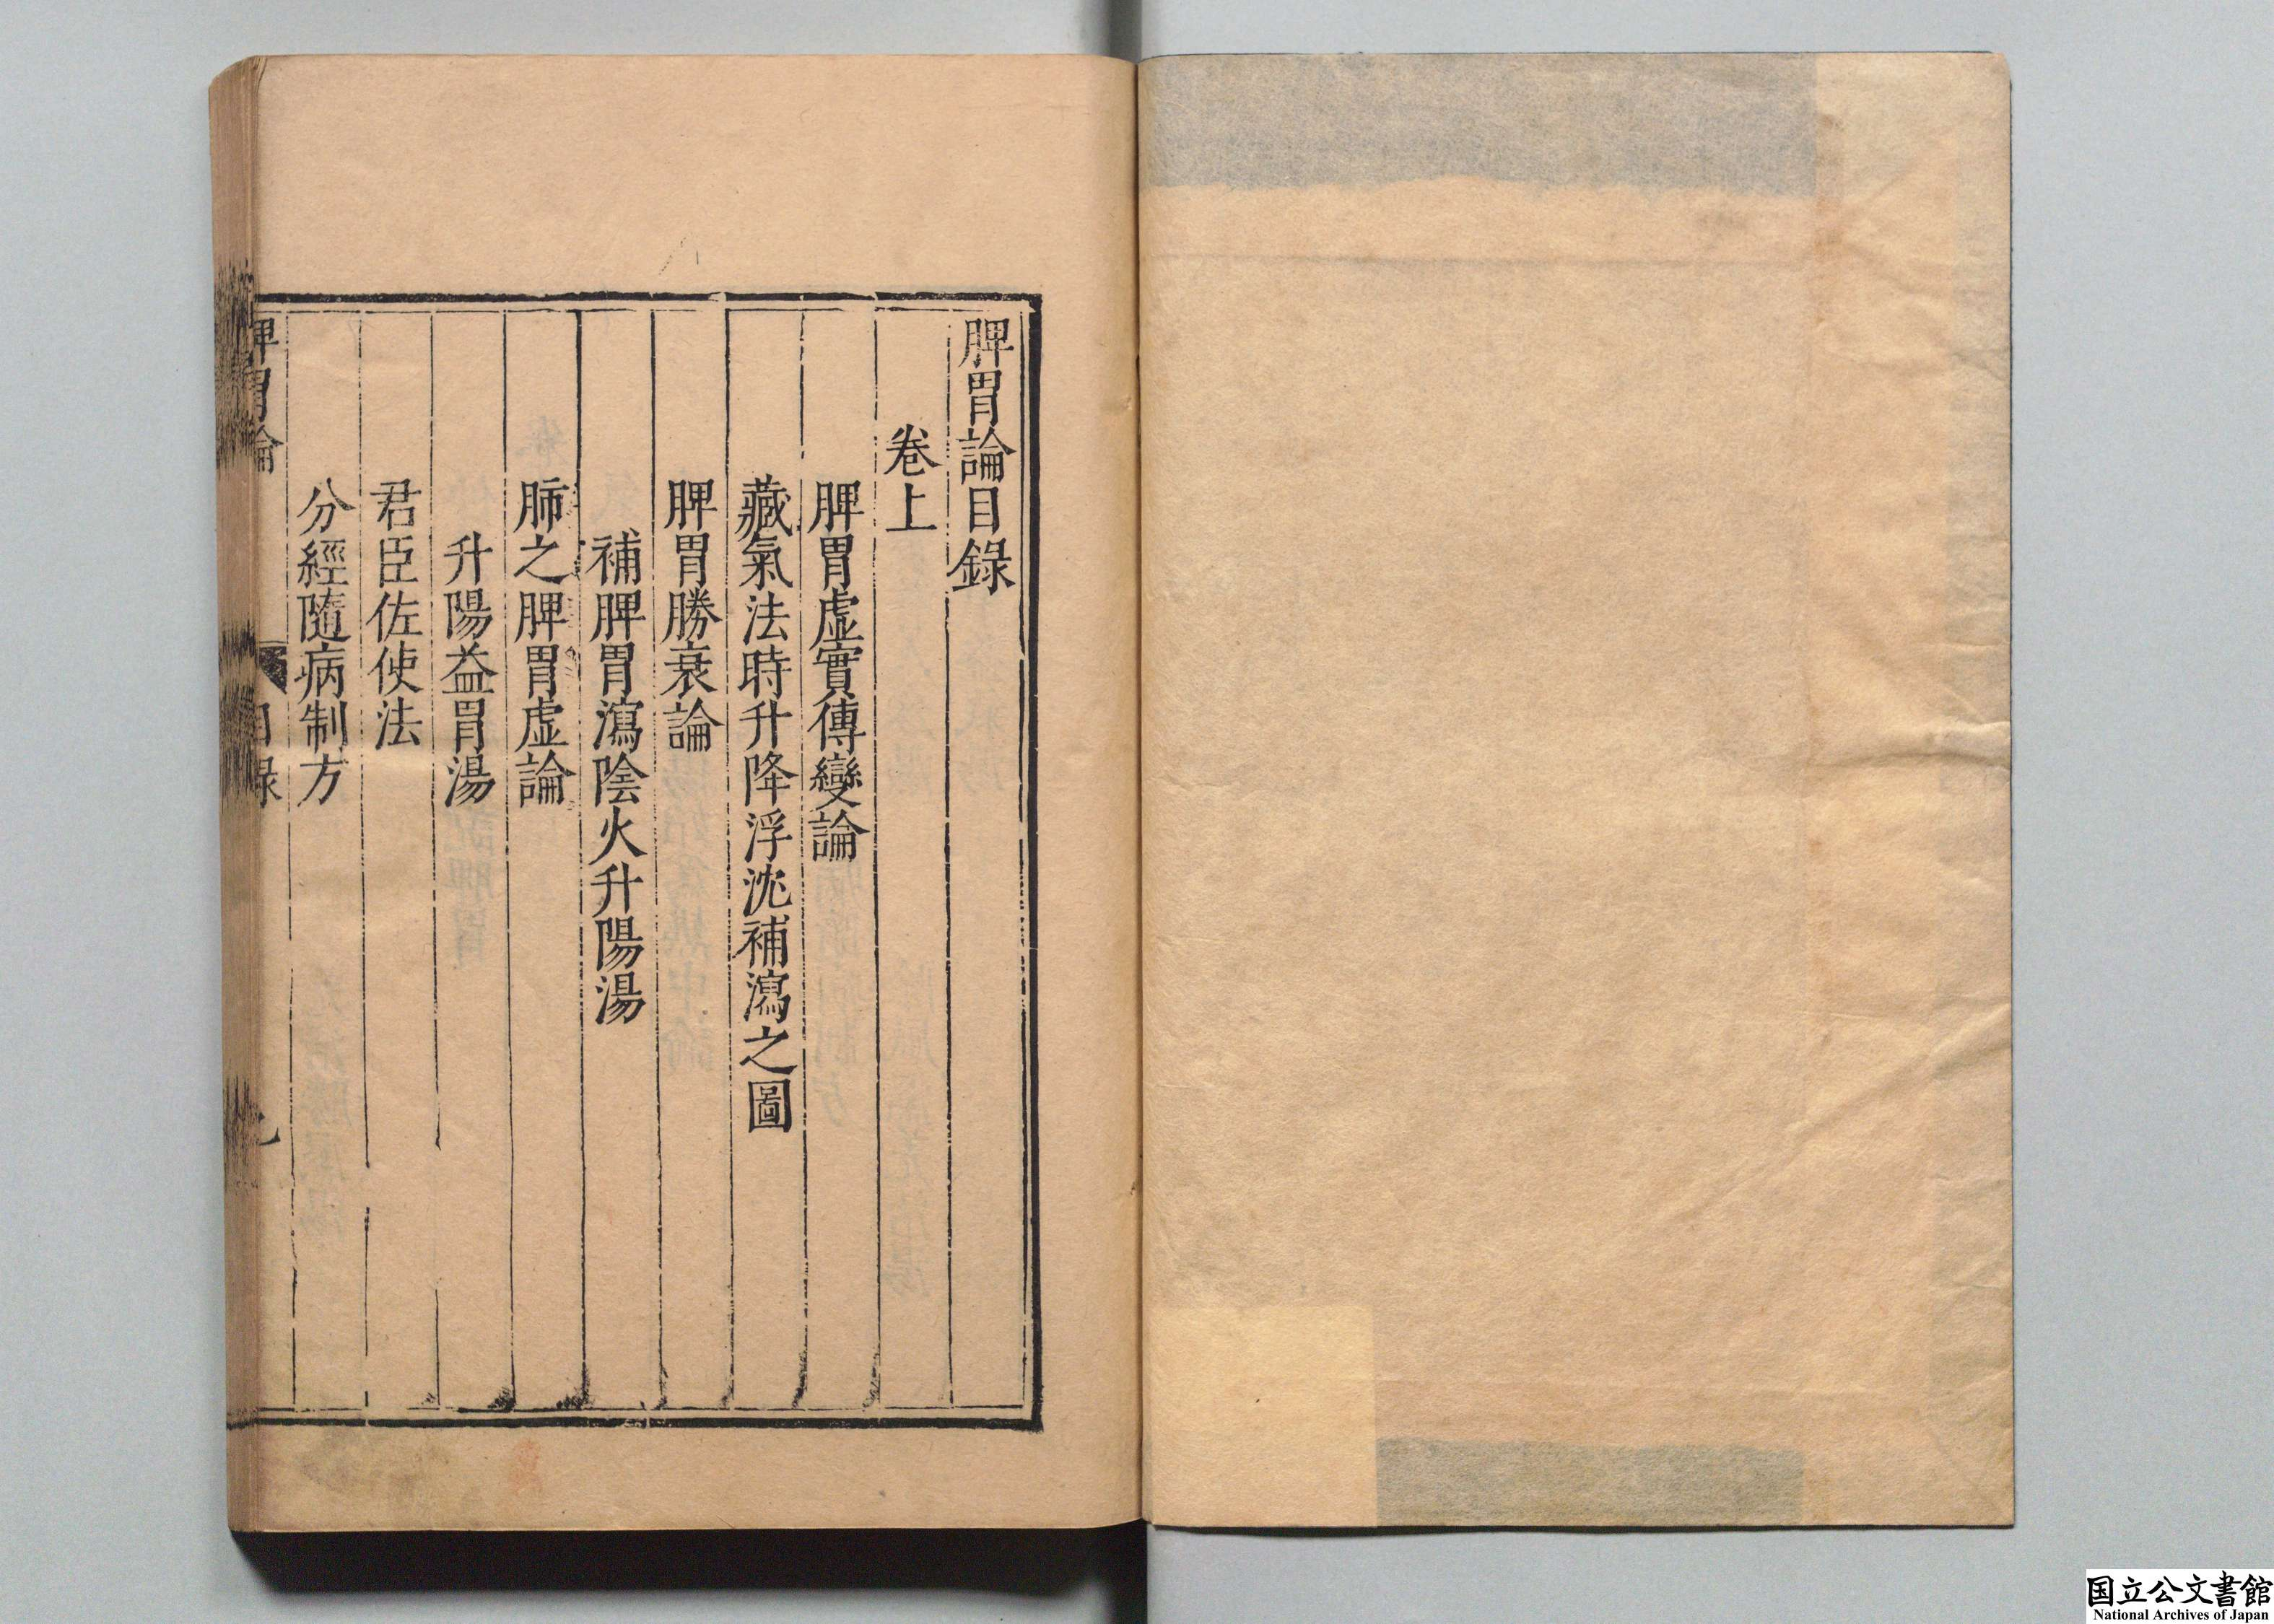 脾胃論目錄
卷上
脾胃虛實傳變論
藏氣法時升降浮沈補瀉之圖
脾胃勝衰論
補脾胃瀉陰火升陽湯
肺之脾胃虛論
升陽益胃湯
君臣佐使法
分經隨病制方
脾胃論 目録
国立公文書館
National Archives of Japan